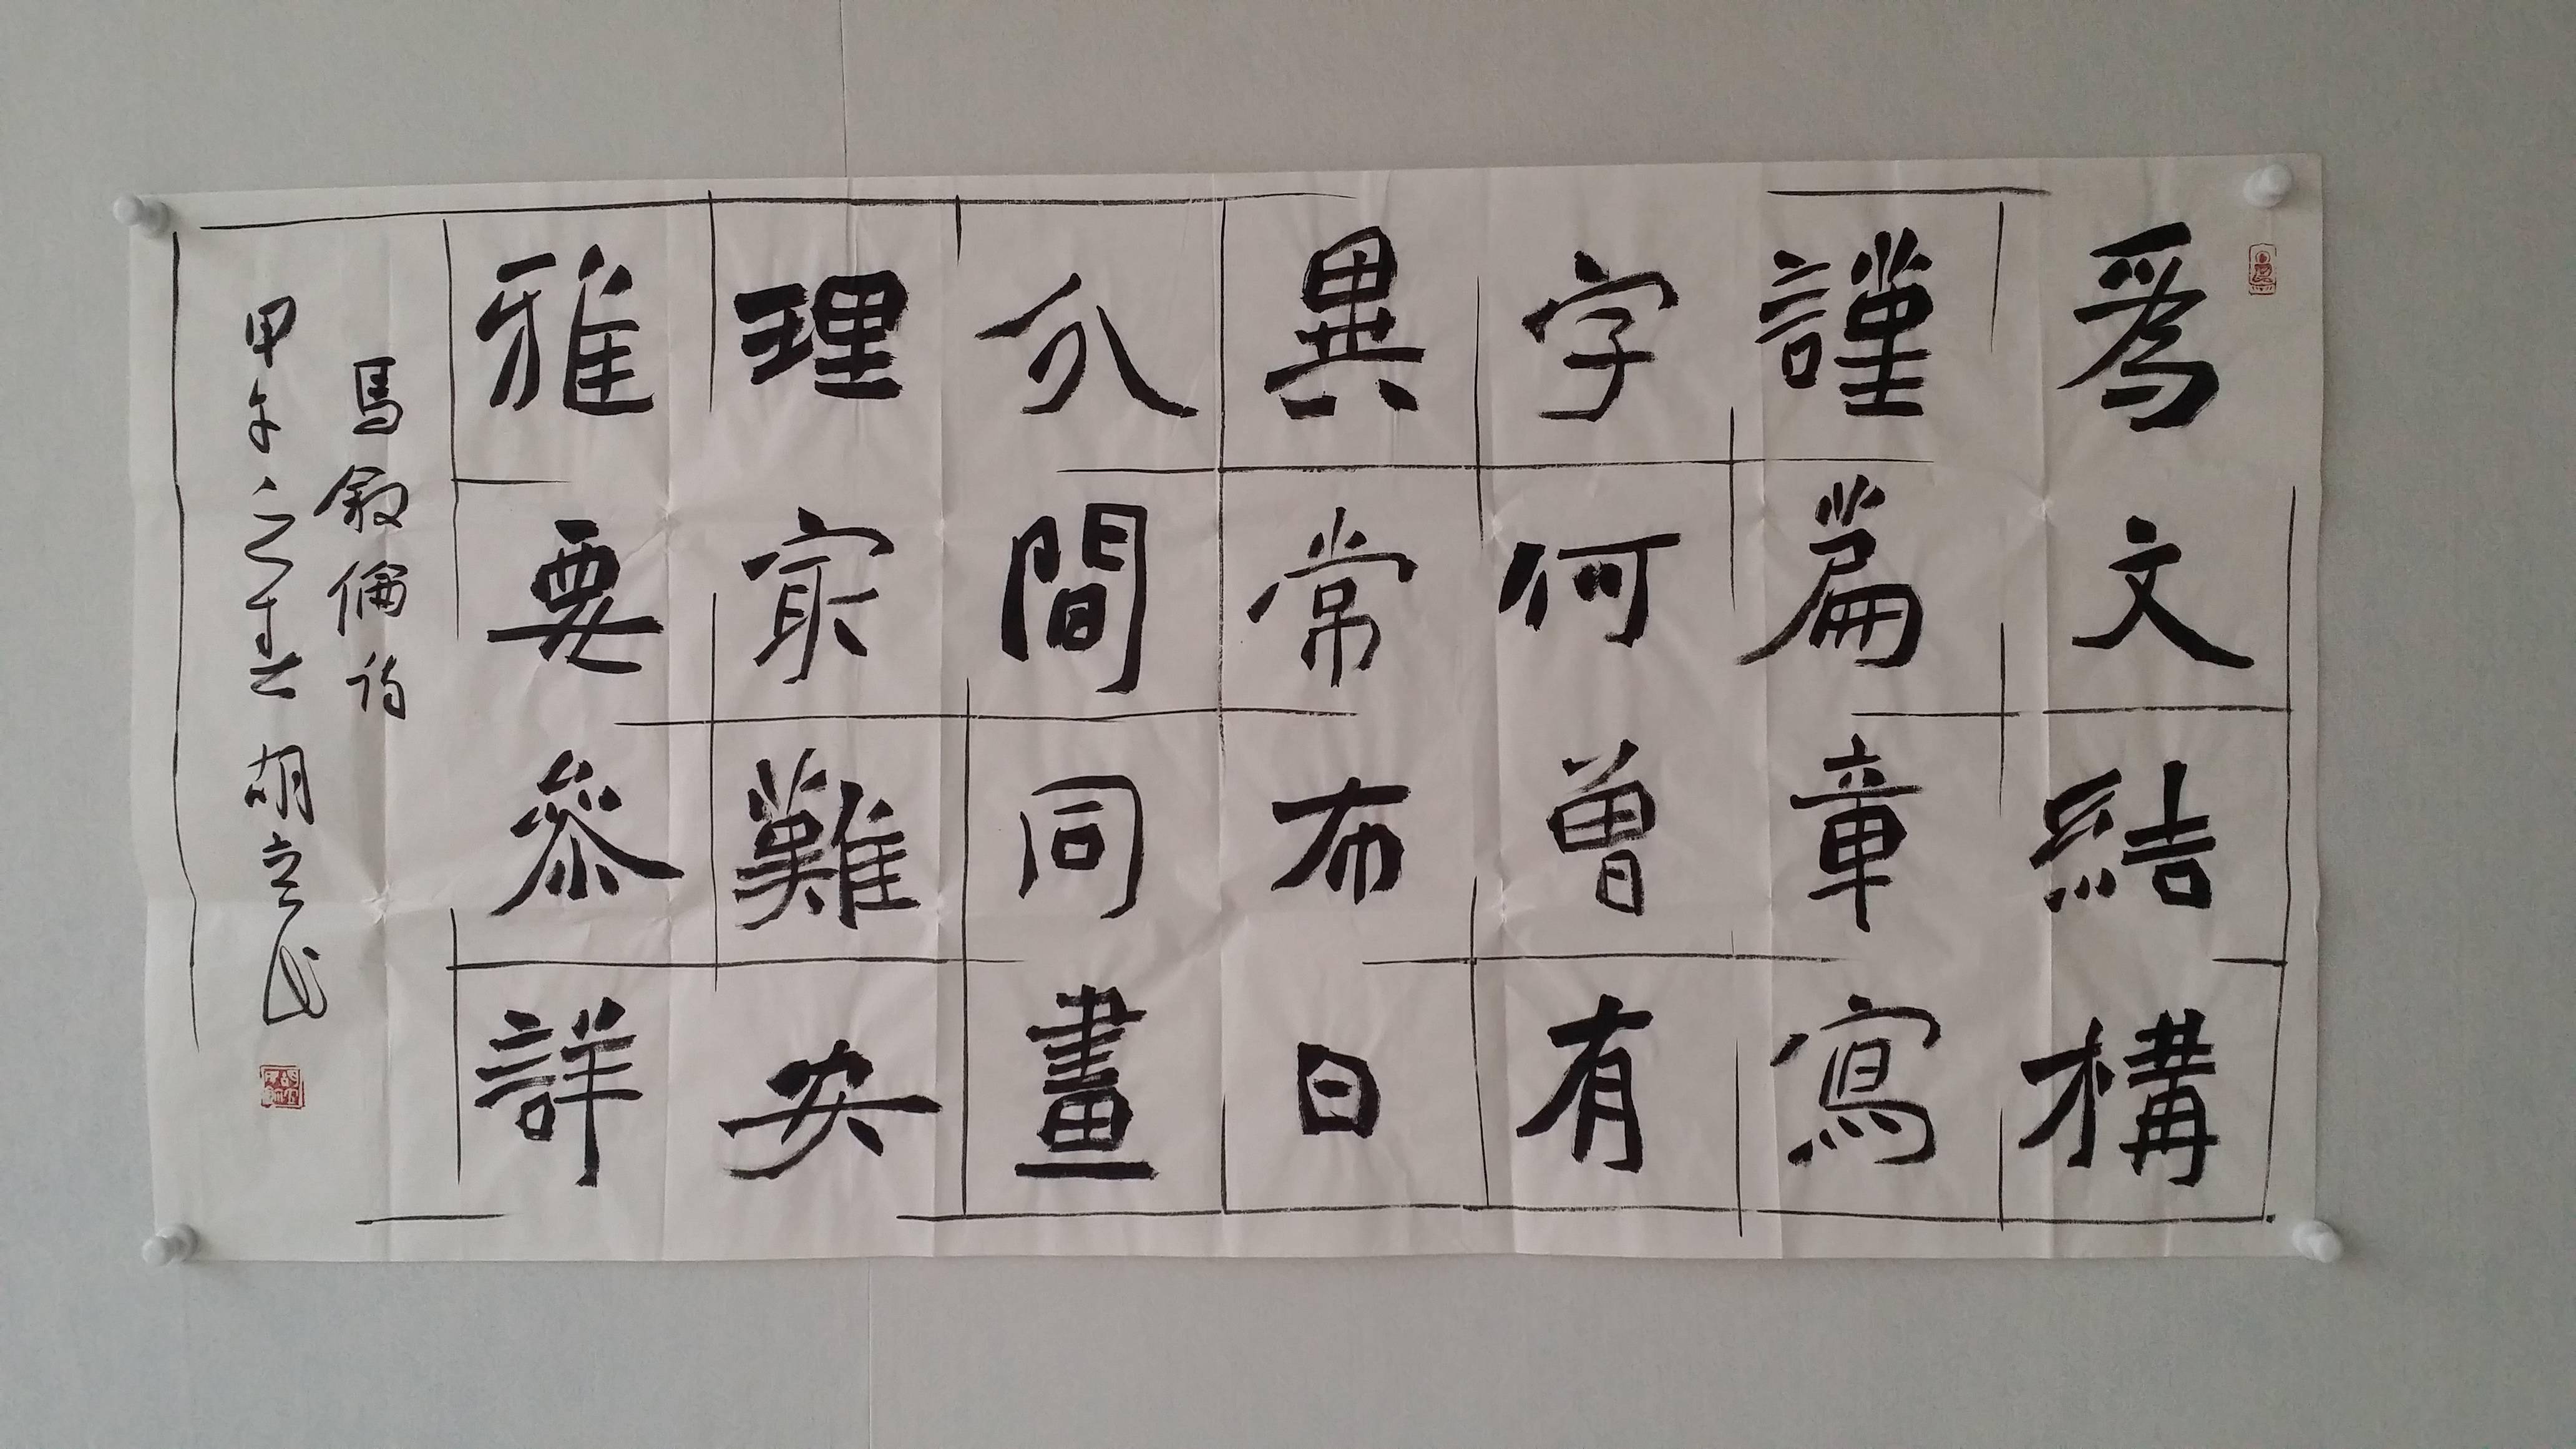 爲文結構
謹篇章寫
字何曾有
異常布白
分間同畫
理最難安
雅要參詳
馬敘倫詩
甲午之春 胡立民